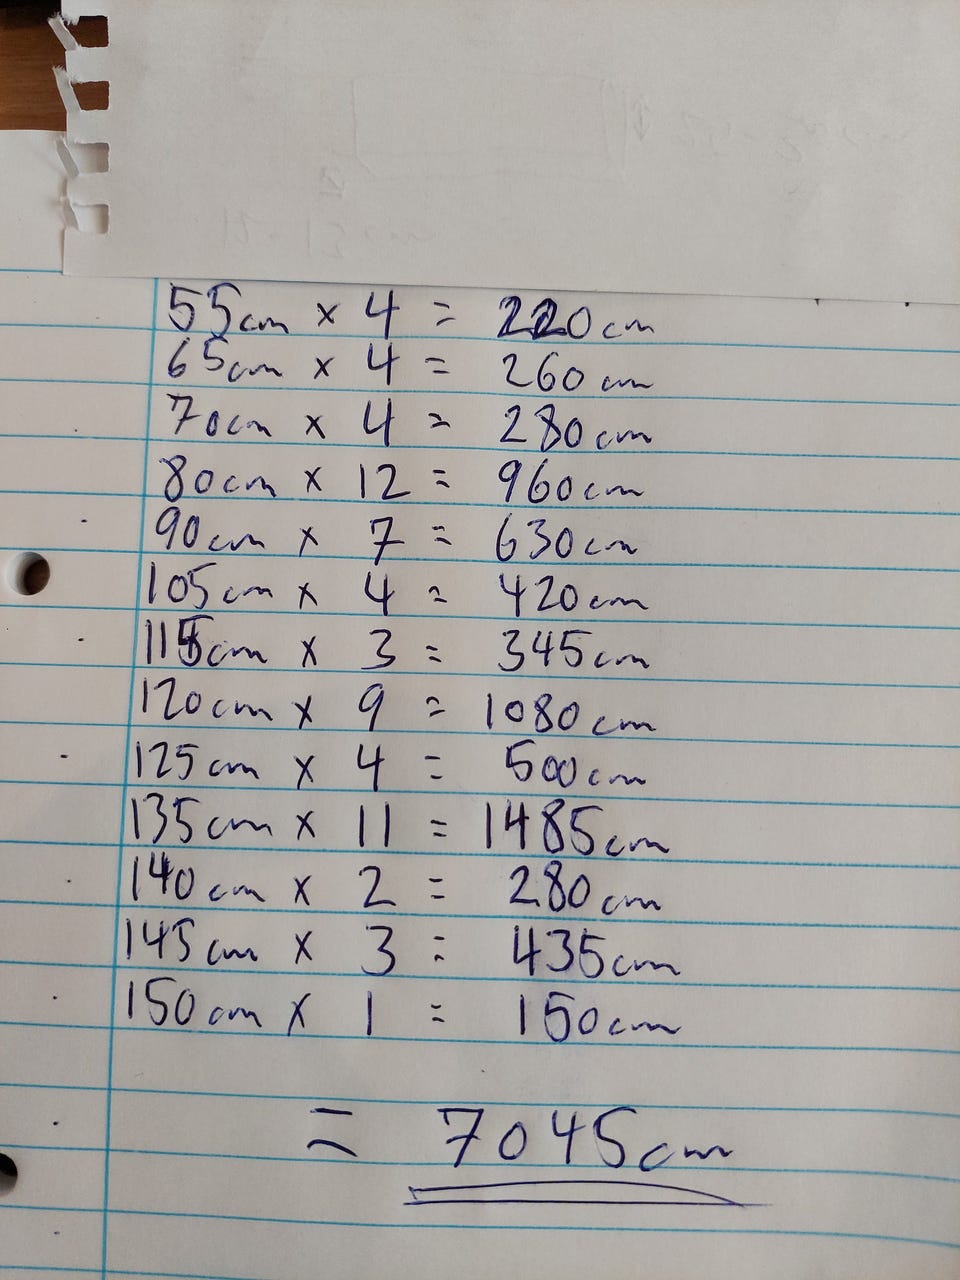 55cm × 4 = 220cm
65cm × 4 = 260cm
70cm × 4 = 280cm
80cm × 12 = 960cm
90cm × 7 = 630cm
105cm × 4 = 420cm
115cm × 3 = 345cm
120cm × 9 = 1080cm
125cm × 4 = 500cm
135cm × 11 = 1485cm
140cm × 2 = 280cm
145cm × 3 = 435cm
150cm × 1 = 150cm
= 7045cm